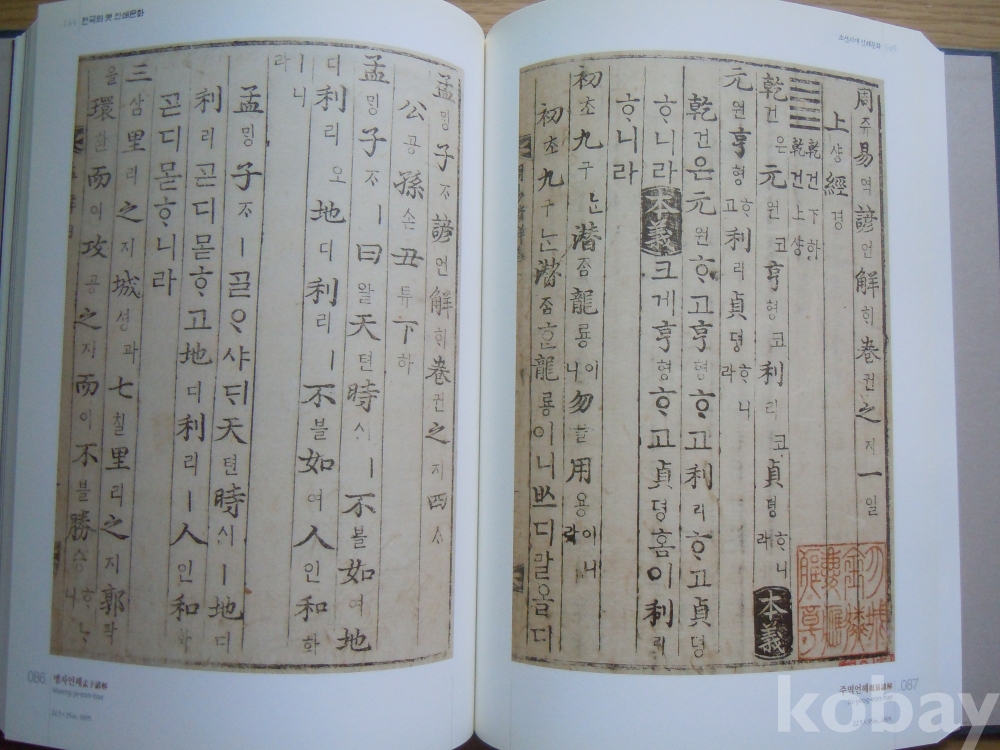 한국의 옛 인쇄문화
孟밍子ᄌᆞ諺언解ᄒᆡ卷권之지四ᄉᆞ
公공孫손丑튜下하
孟밍子ᄌᆞㅣ曰왈天텬時시ㅣ不불如여地
디利리오地디利리ㅣ不불如여人인和화
ㅣ니라
孟밍子ᄌᆞㅣᄀᆞᆯᄋᆞ샤ᄃᆡ天텬時시ㅣ地디
利리ᄀᆞᆮ디몯ᄒᆞ고地디利리ㅣ人인和화
ᄀᆞᆮ디몯ᄒᆞ니라
三삼里리之지城셩과七칠里리之지郭곽
을環환而이攻공之지而이不불勝승ᄒᆞᄂᆞ니
086 맹자언해孟子諺解
조선시대 인쇄문화
周쥬易역諺언解ᄒᆡ卷권之지一일
上샹經경
乾건下하乾건上샹
乾건은元원코亨형코利리코貞뎡ᄒᆞ니라本義
元원亨형ᄒᆞ고利리貞뎡ᄒᆞ니라
乾건은元원ᄒᆞ고亨형ᄒᆞ고利리ᄒᆞ고貞뎡
ᄒᆞ니라本義크게亨형ᄒᆞ고貞뎡홈이利리
ᄒᆞ니라
初초九구ᄂᆞᆫ潛ᄌᆞᆷ龍룡이니勿믈用용이니라
初초九구ᄂᆞᆫ潛ᄌᆞᆷᄒᆞᆫ龍룡이니ᄡᅳ디말올디
주역언해周易諺解 087
kobay